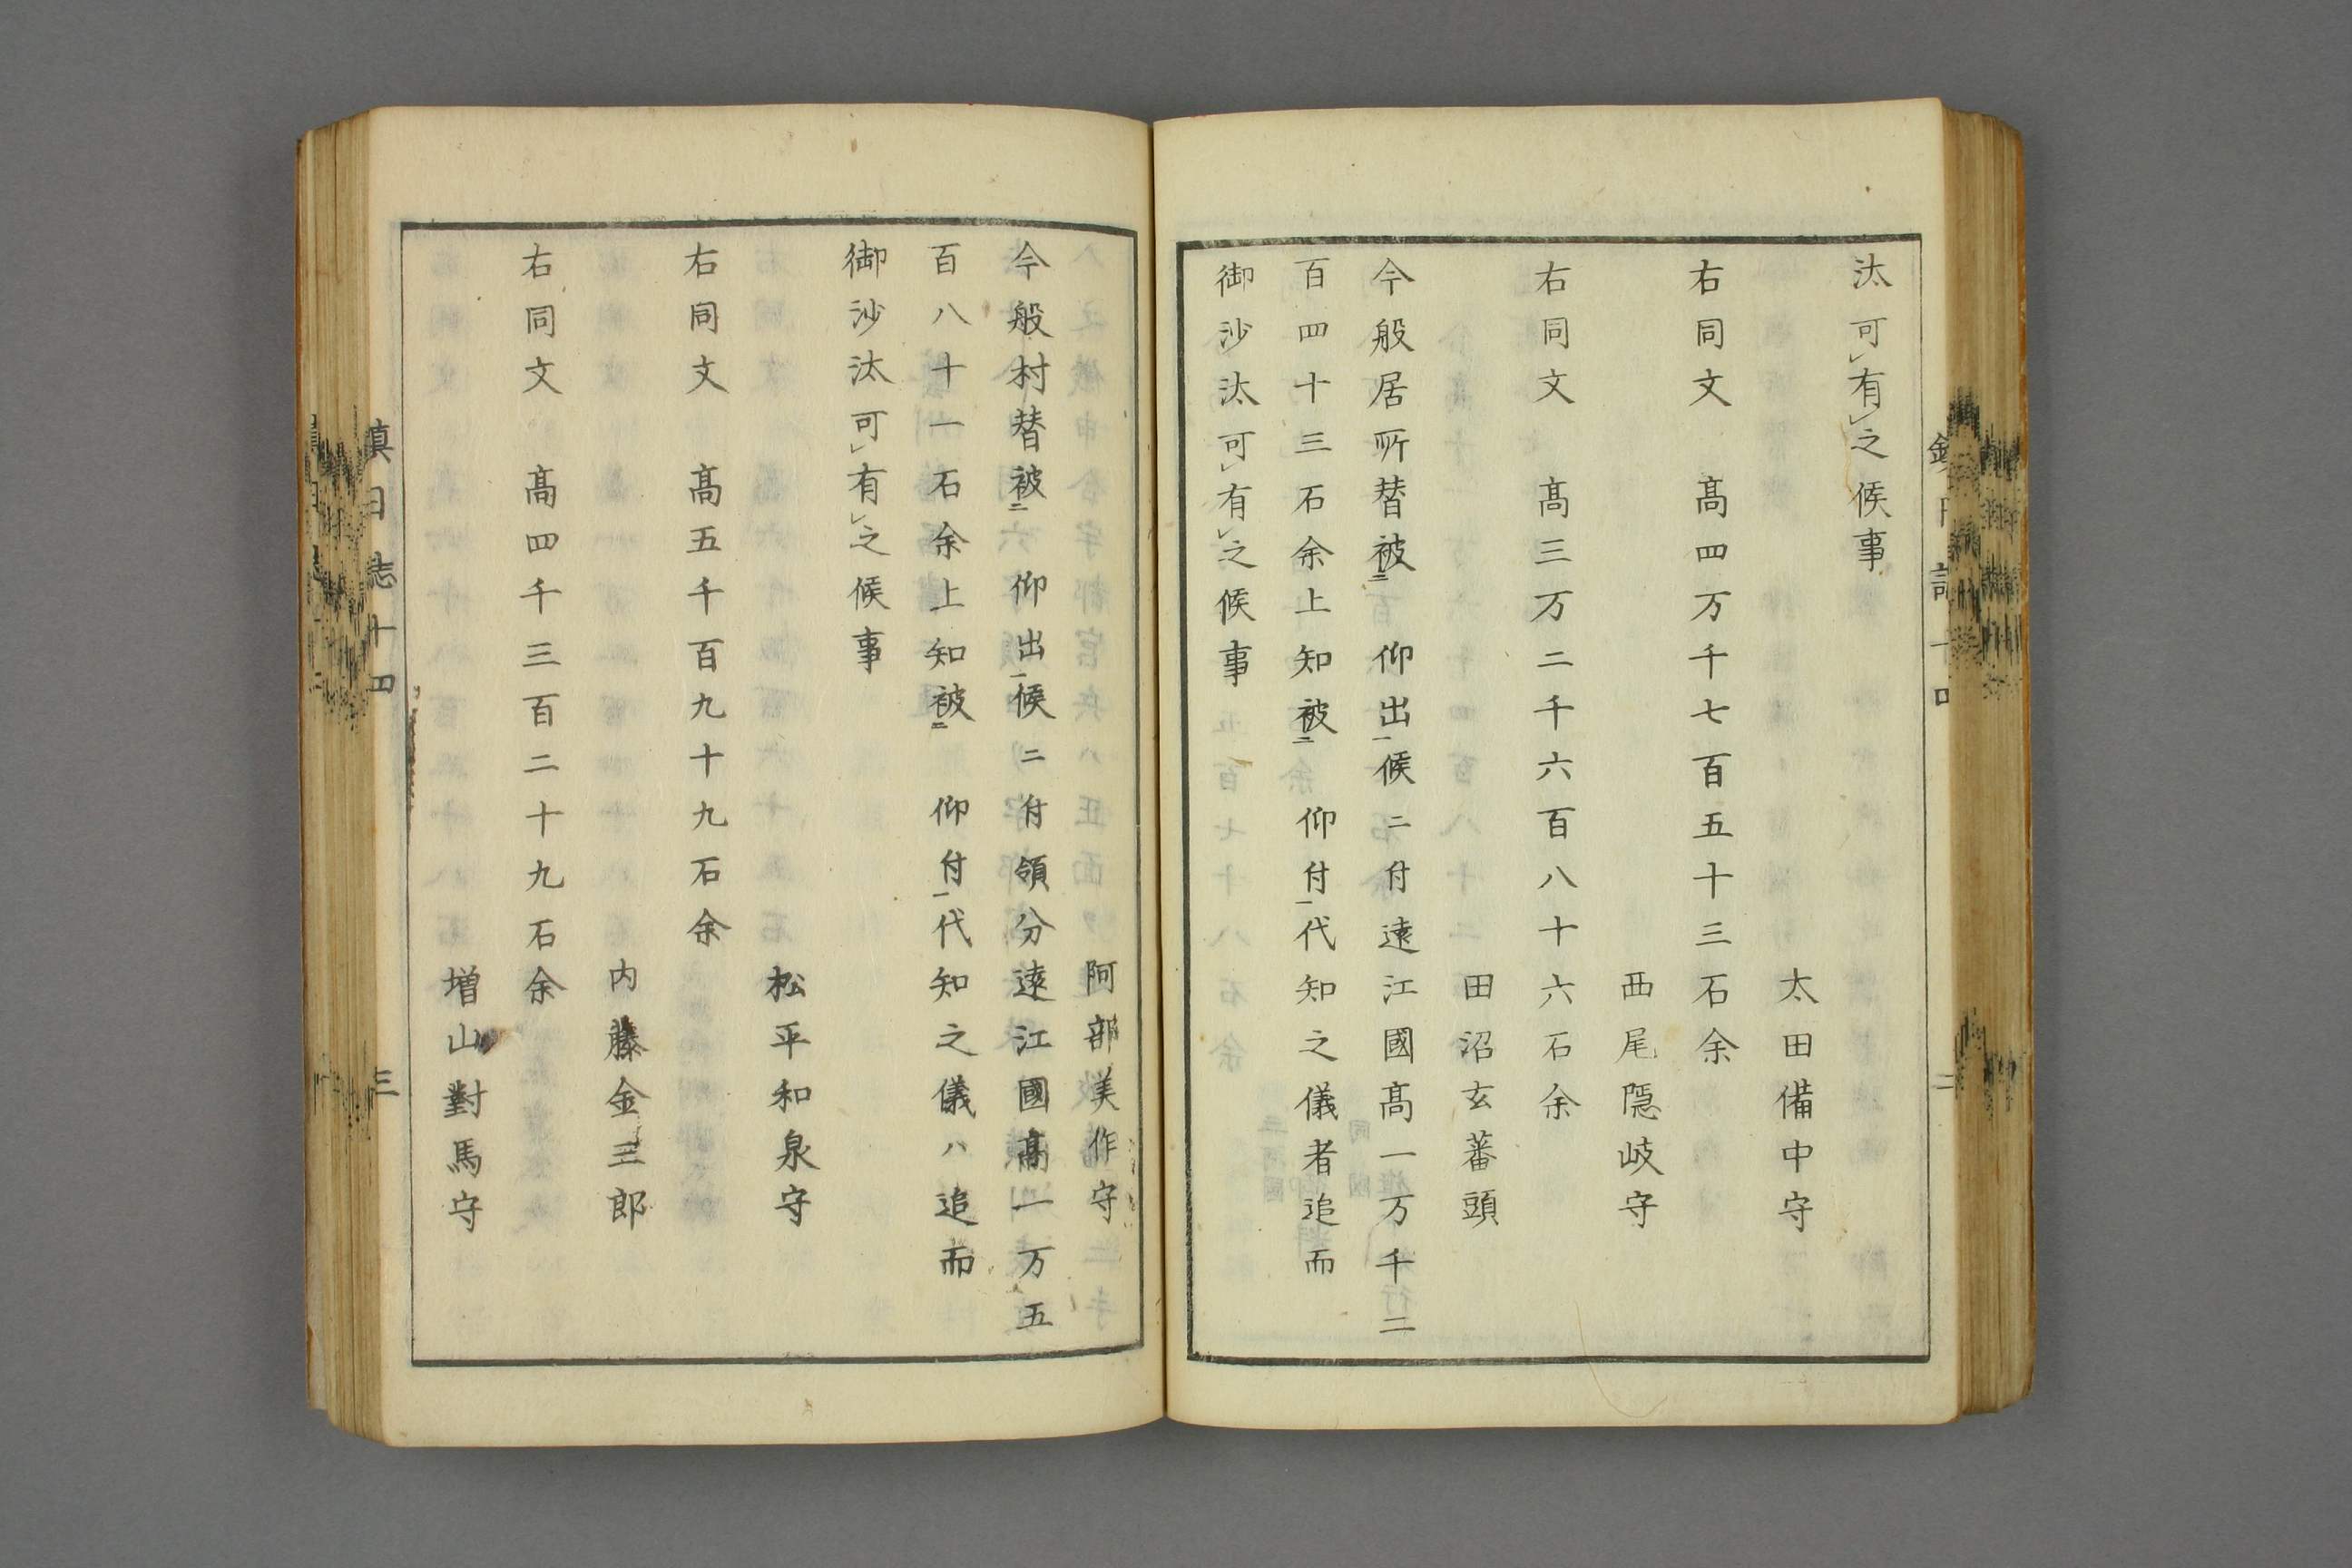 汰可㆑有㆑之候事
太田備中守
右同文　髙四万千七百五十三石余
西尾隠岐守
右同文　髙三万二千六百八十六石余
田沼玄蕃頭
今般居所替被㆓　仰出㆒候ニ付遠江國髙一万千二
百四十三石余上知被㆓　仰付㆒代知之儀者追而
御沙汰可㆑有㆑之候事
阿部美作守
今般村替被㆓　仰出㆒候ニ付領分遠江國髙一万五
百八十一石余上知被㆓　仰付㆒代知之儀ハ追而
御沙汰可㆑有㆑之候事
松平和泉守
右同文　髙五千百九十九石余
内藤金三郎
右同文　髙四千三百二十九石余
増山對馬守
鎮日志十四
三